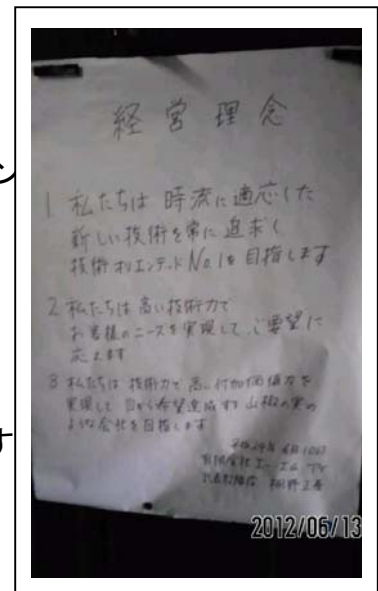 ン
す
経営理念
1 私たちは 時流に適応した
新しい技術を常に追求し
技術オリエンテッド No.1を目指します
2 私たちは高い技術力で
お客様のニーズを実現して、ご要望に
応えます
3 私たちは 技術力で高い付加価値力を
実現して 自から希望達成する山椒の実の
ような会社を目指します
平成24年 6月10日
有限会社エー・エム
代表取締役
2012/06/13